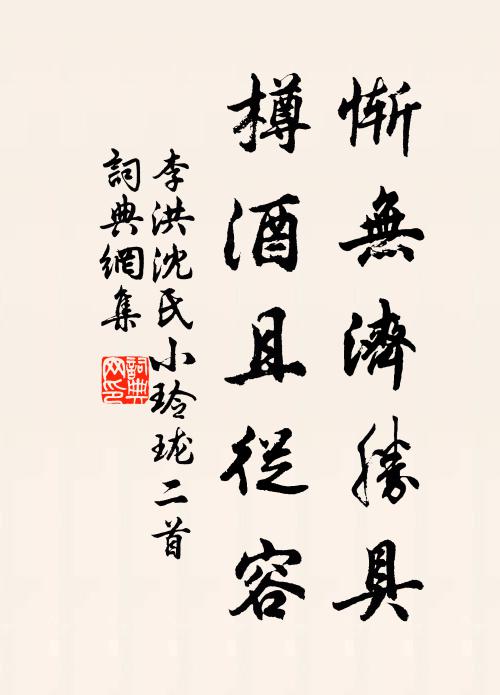 慚無濟勝具
樽酒且從容
李洪沈氏小玲瓏二首
詞典網集
詞典网印